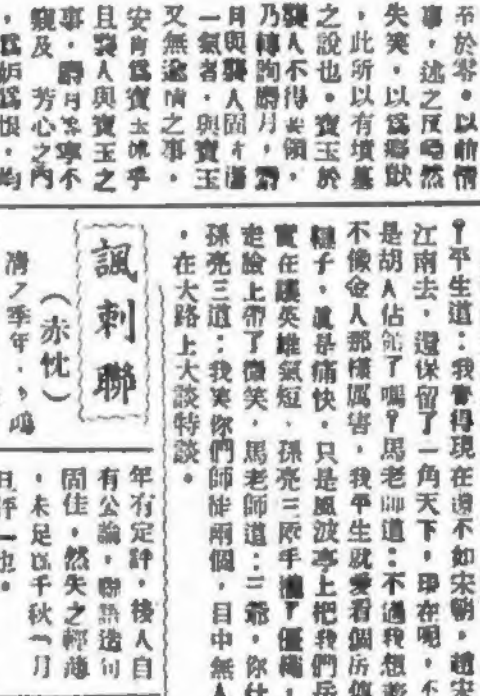 至於零•以前情
事，述之反啞然
失笑•以爲癡獃
，此所以有墳墓
之說也•寶玉於
襲人不得要領，
乃轉詢麝月，
月與襲人固
一氣者•與寶玉
又無戀情之事，
安肯爲寶玉
且襲人與寶玉之
事•麝月寧不
窺及 芳心之內
，爲妒爲恨•均
平生道：我覺得現在還不如宋朝，趙宋
江南去，還保留了一角天下，現在呢，
是胡人佔領了嗎？馬老師道：不過我想
不像金人那樣厲害，我平生就愛看個岳傳
子，眞是痛快，只是風波亭上把我們岳
實在讓英雄氣短，孫亮三兩手
走臉上帶了微笑，馬老師道：三爺，你
孫亮三道：我笑你們師徒兩個，目中無人
，在大路上大談特談。
諷刺聯
（赤忱）
清之季年，，
年有定評，後人自
有公論，聯語造句
固佳，然失之輕薄
，未足爲千秋月
旦評也。